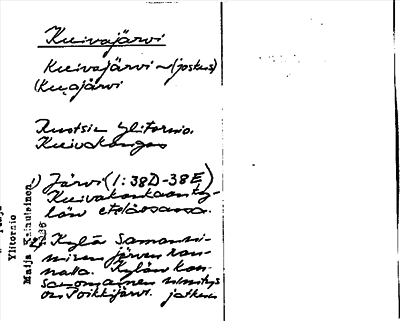 Kuivajärvi
Kuivajärvi ~ (joskus)
Kuajärvi
Ruotsin Ylitornio.
Kuivakangas
1) Järvi (1:38D-38E)
Kuivakankaan ky-
län eteläosassa.
2) Kylä samanni-
misen järven ran-
nalla. Kylän kan-
sanomainen nimitys
on Poikkijärvi. jatkuu
Ylitornio
Maija